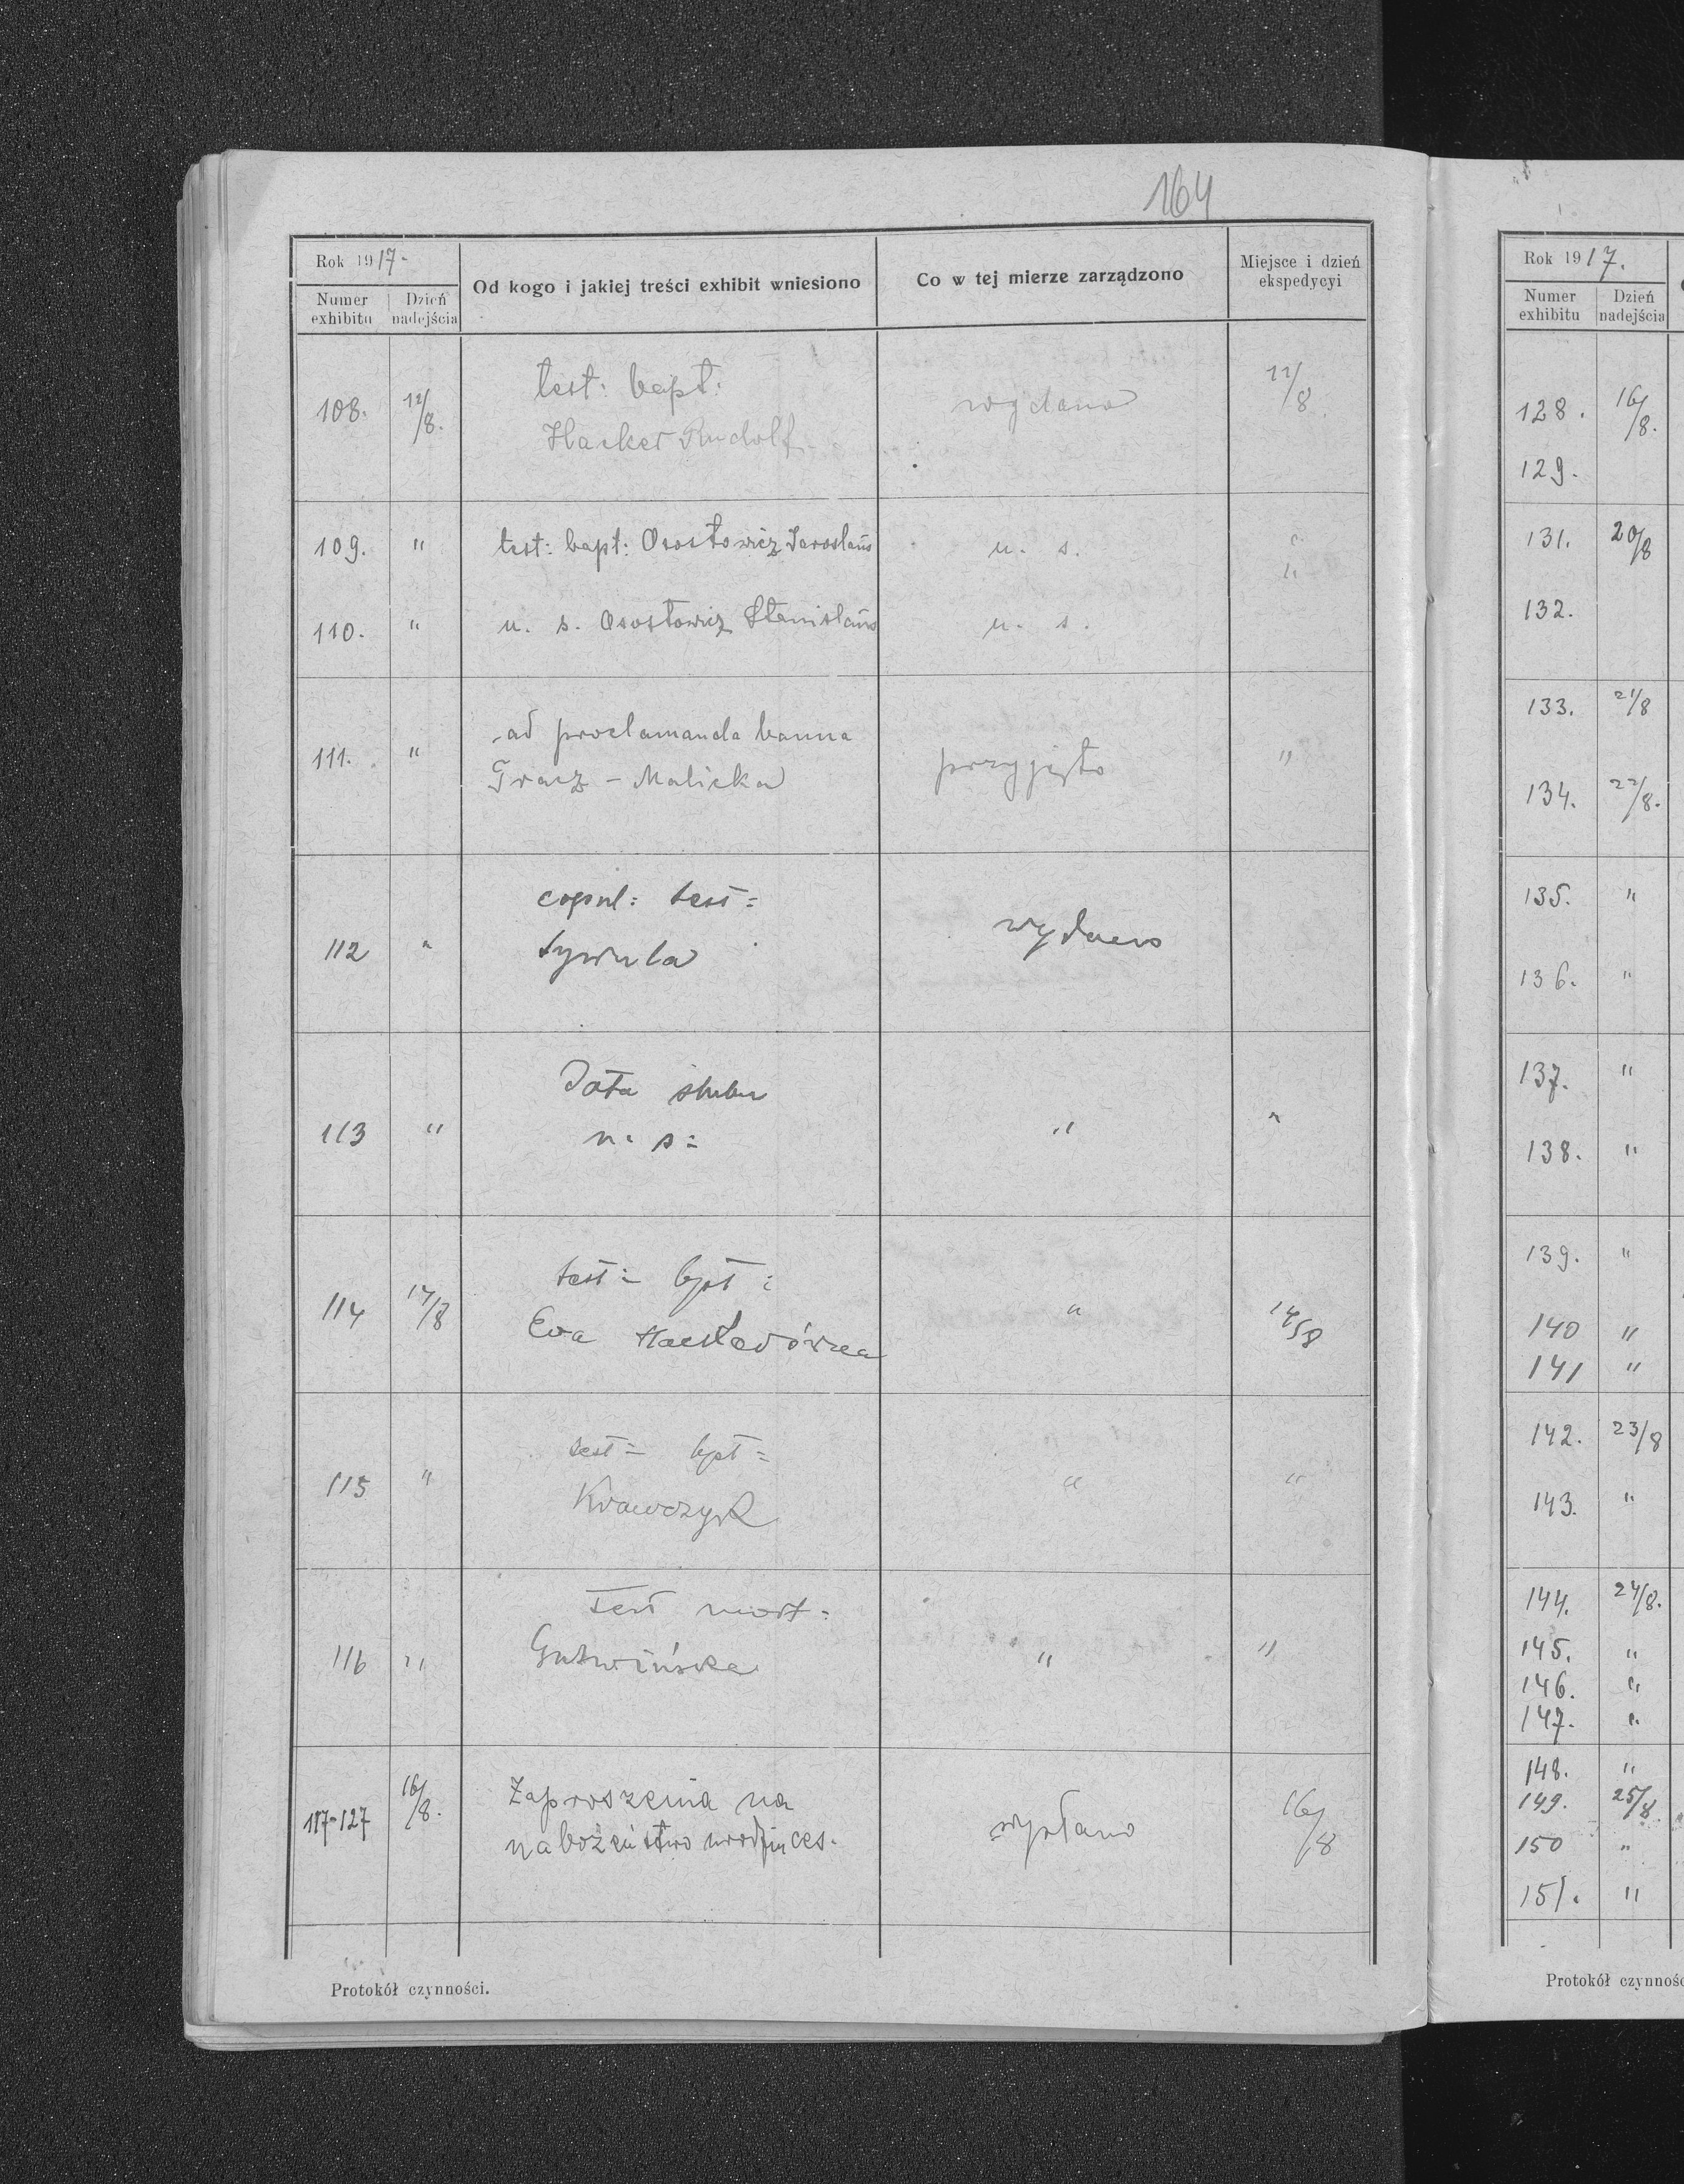 164
Rok 1917-
Numer exhibitu
Dzień nadejścia
Od kogo i jakiej treści exhibit wniesiono
Co w tej mierze zarządzono
Miejsce i dzień ekspedycyi
108. 12/8. test: bapt: wydano 12/8.
Hacker Rudolf
109. " test: bapt: Osostowicz Jarosław u. s. "
110. " u. s. Osostowicz Stanisław u. s. "
111. " ad proclamanda banna przyjęto "
Gracz - Malicka
112 " copul: test: wydano
Sywula
113 " Data ślubu " "
u. s:
114 14/8 test: bpt: " 14/8
Eva
115 " test: bpt: " "
Krawczyk
116 " Test mort: " "
Gutwińska
117-127 16/8. Zaproszenia na wysłano 16/8
nabożeństwo urodzin ces.
Protokół czynności.
Rok 1917.
Numer exhibitu
Dzień nadejścia
128. 16/8.
129.
131. 20/8
132.
133. 21/8
134. 22/8.
135. "
136. "
137. "
138. "
139. "
140 "
141 "
142. 23/8
143. "
144. 24/8.
145. "
146. "
147. "
148. "
149. 25/8
150 "
151. "
Protokół